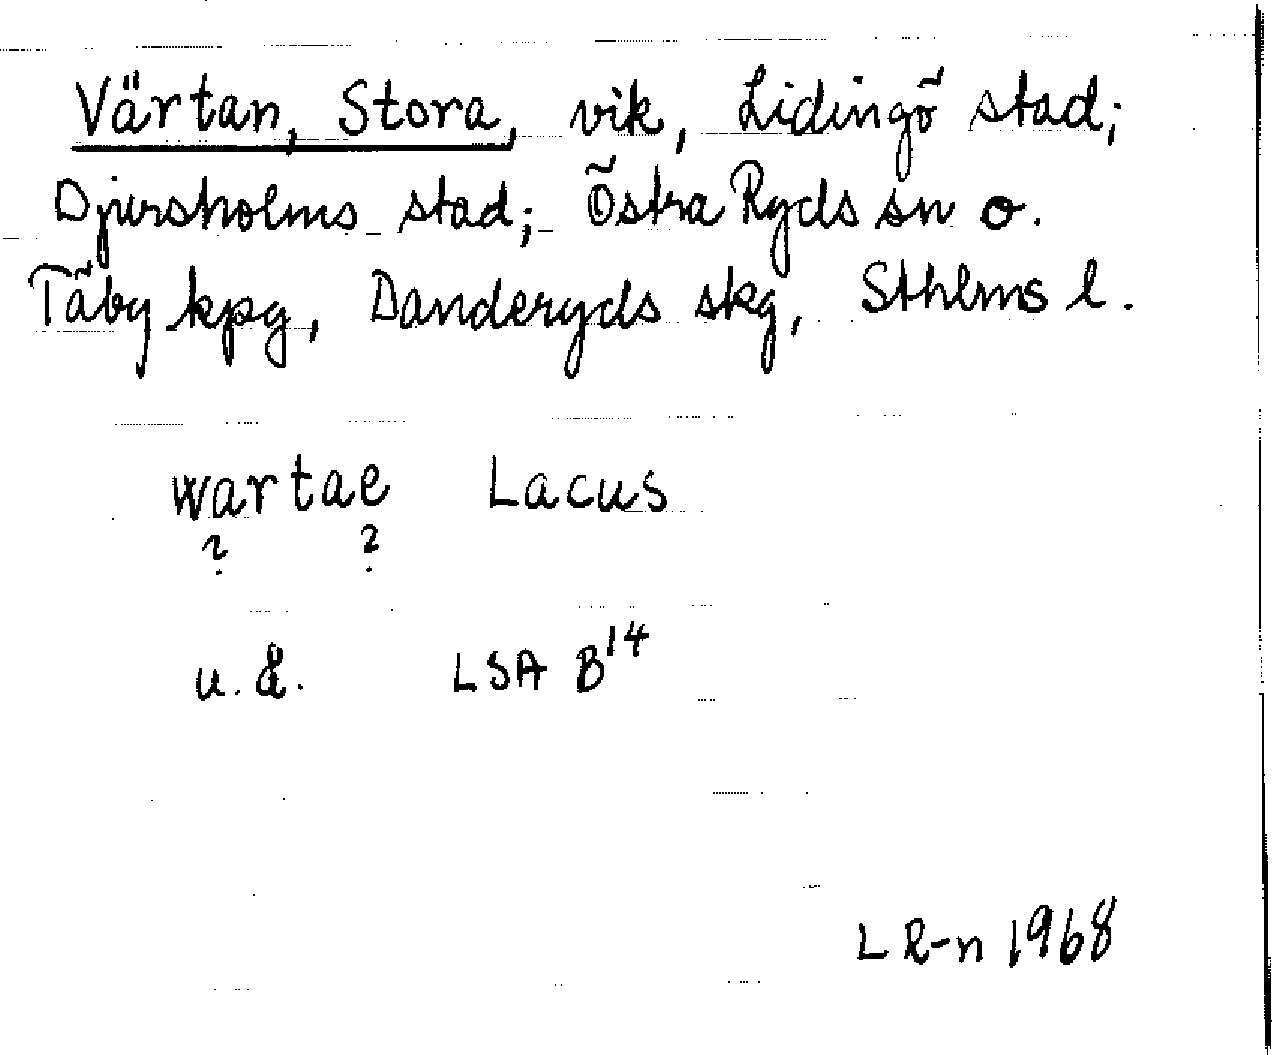 Värtan, Stora, vik, Lidingö stad;
Djursholms stad; Östra Ryds sn o.
Täby kpg, Danderyds skg, Sthlms l.
wartae Lacus
? ?
u.å. LSA B14
L R-n 1968